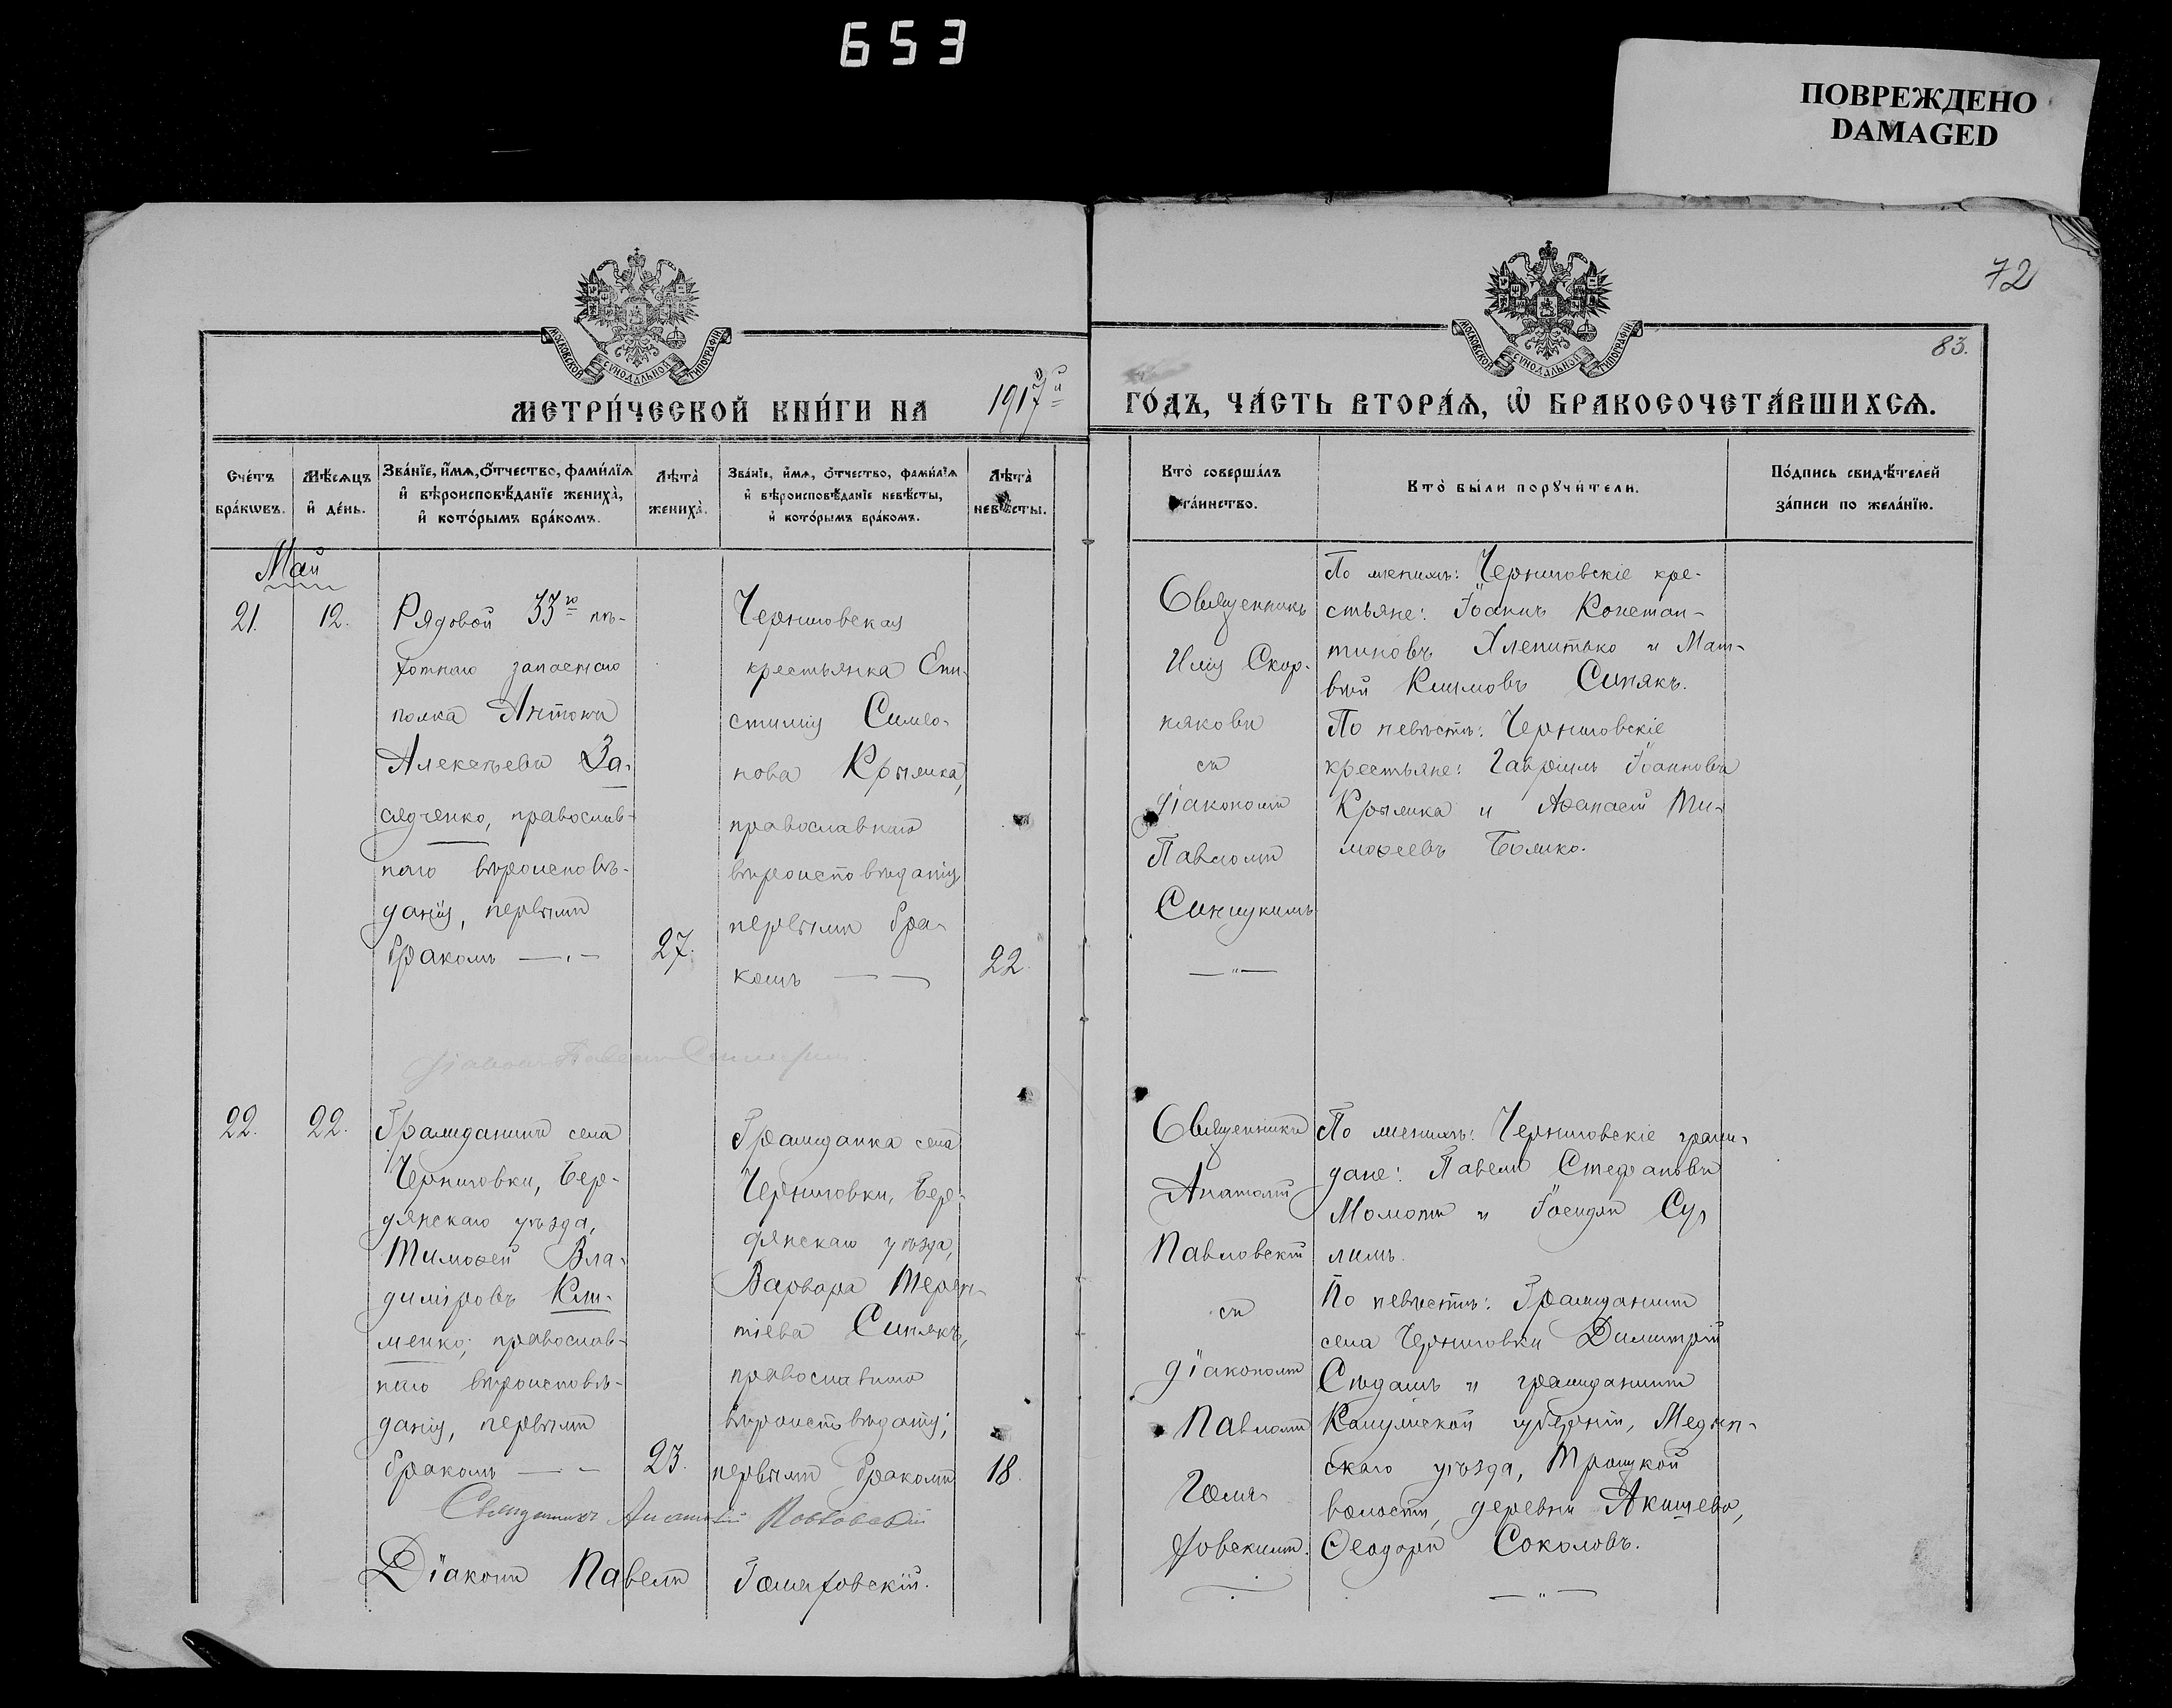 653
ПОВРЕЖДЕНО
DAMAGED
72
83.
МОСКОВСКОЙ СѴНОДАЛЬНОЙ ТИПОГРАФІИ
МОСКОВСКОЙ СѴНОДАЛЬНОЙ ТИПОГРАФІИ
МЕТРИ́ЧЕСКОЙ КНИ́ГИ НА 1917й
ГО́ДЪ, ЧА́СТЬ ВТОРА́Ѧ, Ѡ҆ БРАКОСОЧЕТА́ВШИХСѦ.
Сче́тъ
бра́кѡвъ.
Мѣ́сѧцъ
и҆ де́нь.
Зва́нїе, и҆́мѧ, ѻ҆́тчество, фами́лїѧ
и҆ вѣроисповѣ́данїе жениха̀,
и҆ кото́рымъ бра́комъ.
Лѣта̀
жениха̀.
Зва́нїе, и҆́мѧ, ѻ҆́тчество, фами́лїѧ
и҆ вѣроисповѣ́данїе невѣ́сты,
и҆ кото́рымъ бра́комъ.
Лѣта̀
невѣ́сты.
Кто̀ соверша́лъ
та́инство.
Кто̀ бы́ли порꙋчи́тели.
По́дпись свидѣ́телей
за́писи по жела́нїю.
Май
21.
12.
Рядовой 33го пѣ-
хотнаго запаснаго
полка Антонъ
Алексѣевъ За-
сядченко, православ-
наго вѣроисповѣ-
данія, первымъ
бракомъ
27.
Черниговская
крестьянка Епи-
стимія Симео-
нова Крылика,
православнаго
вѣроисповѣданія
первымъ бра-
комъ
22.
Священникъ
Илія Скор-
няковъ
съ
діакономъ
Павломъ
Синицкимъ
По женихѣ: Черниговскіе кре-
стьяне: Іоаннъ Констан-
тиновъ Хлепитько и Мат-
вѣй Климовъ Синякъ.
По невѣстѣ: Черниговскіе
крестьяне: Гавріилъ Іоанновъ
Крылика и Аѳанасій Ти-
моѳеевъ Бѣлико.
22.
22.
Гражданинъ села
Черниговки, Бер-
дянскаго уѣзда,
Тимоѳей Вла-
диміровъ Кли-
менко, православ-
наго вѣроисповѣ-
данія, первымъ
бракомъ
23.
Гражданка села
Черниговки, Бер-
дянскаго уѣзда,
Варвара Терен-
тіева Синякъ,
православнаго
вѣроисповѣданія;
первымъ бракомъ
18.
Священникъ
Анатолій
Павловскій
съ
діакономъ
Павломъ
Голя-
ховскимъ.
По женихѣ: Черниговскіе граж-
дане: Павелъ Стефановъ
Момотъ и Іосифъ Су-
лимъ.
По невѣстѣ: Гражданинъ
села Черниговки Димитрій
Сѣдашъ и гражданинъ
Калужской губерніи, Медын-
скаго уѣзда, Троицкой
волости, деревни Акишева,
Ѳеодоръ Соколовъ.
Священникъ Анатолій Павловскій
Діаконъ Павелъ Голяховскій.